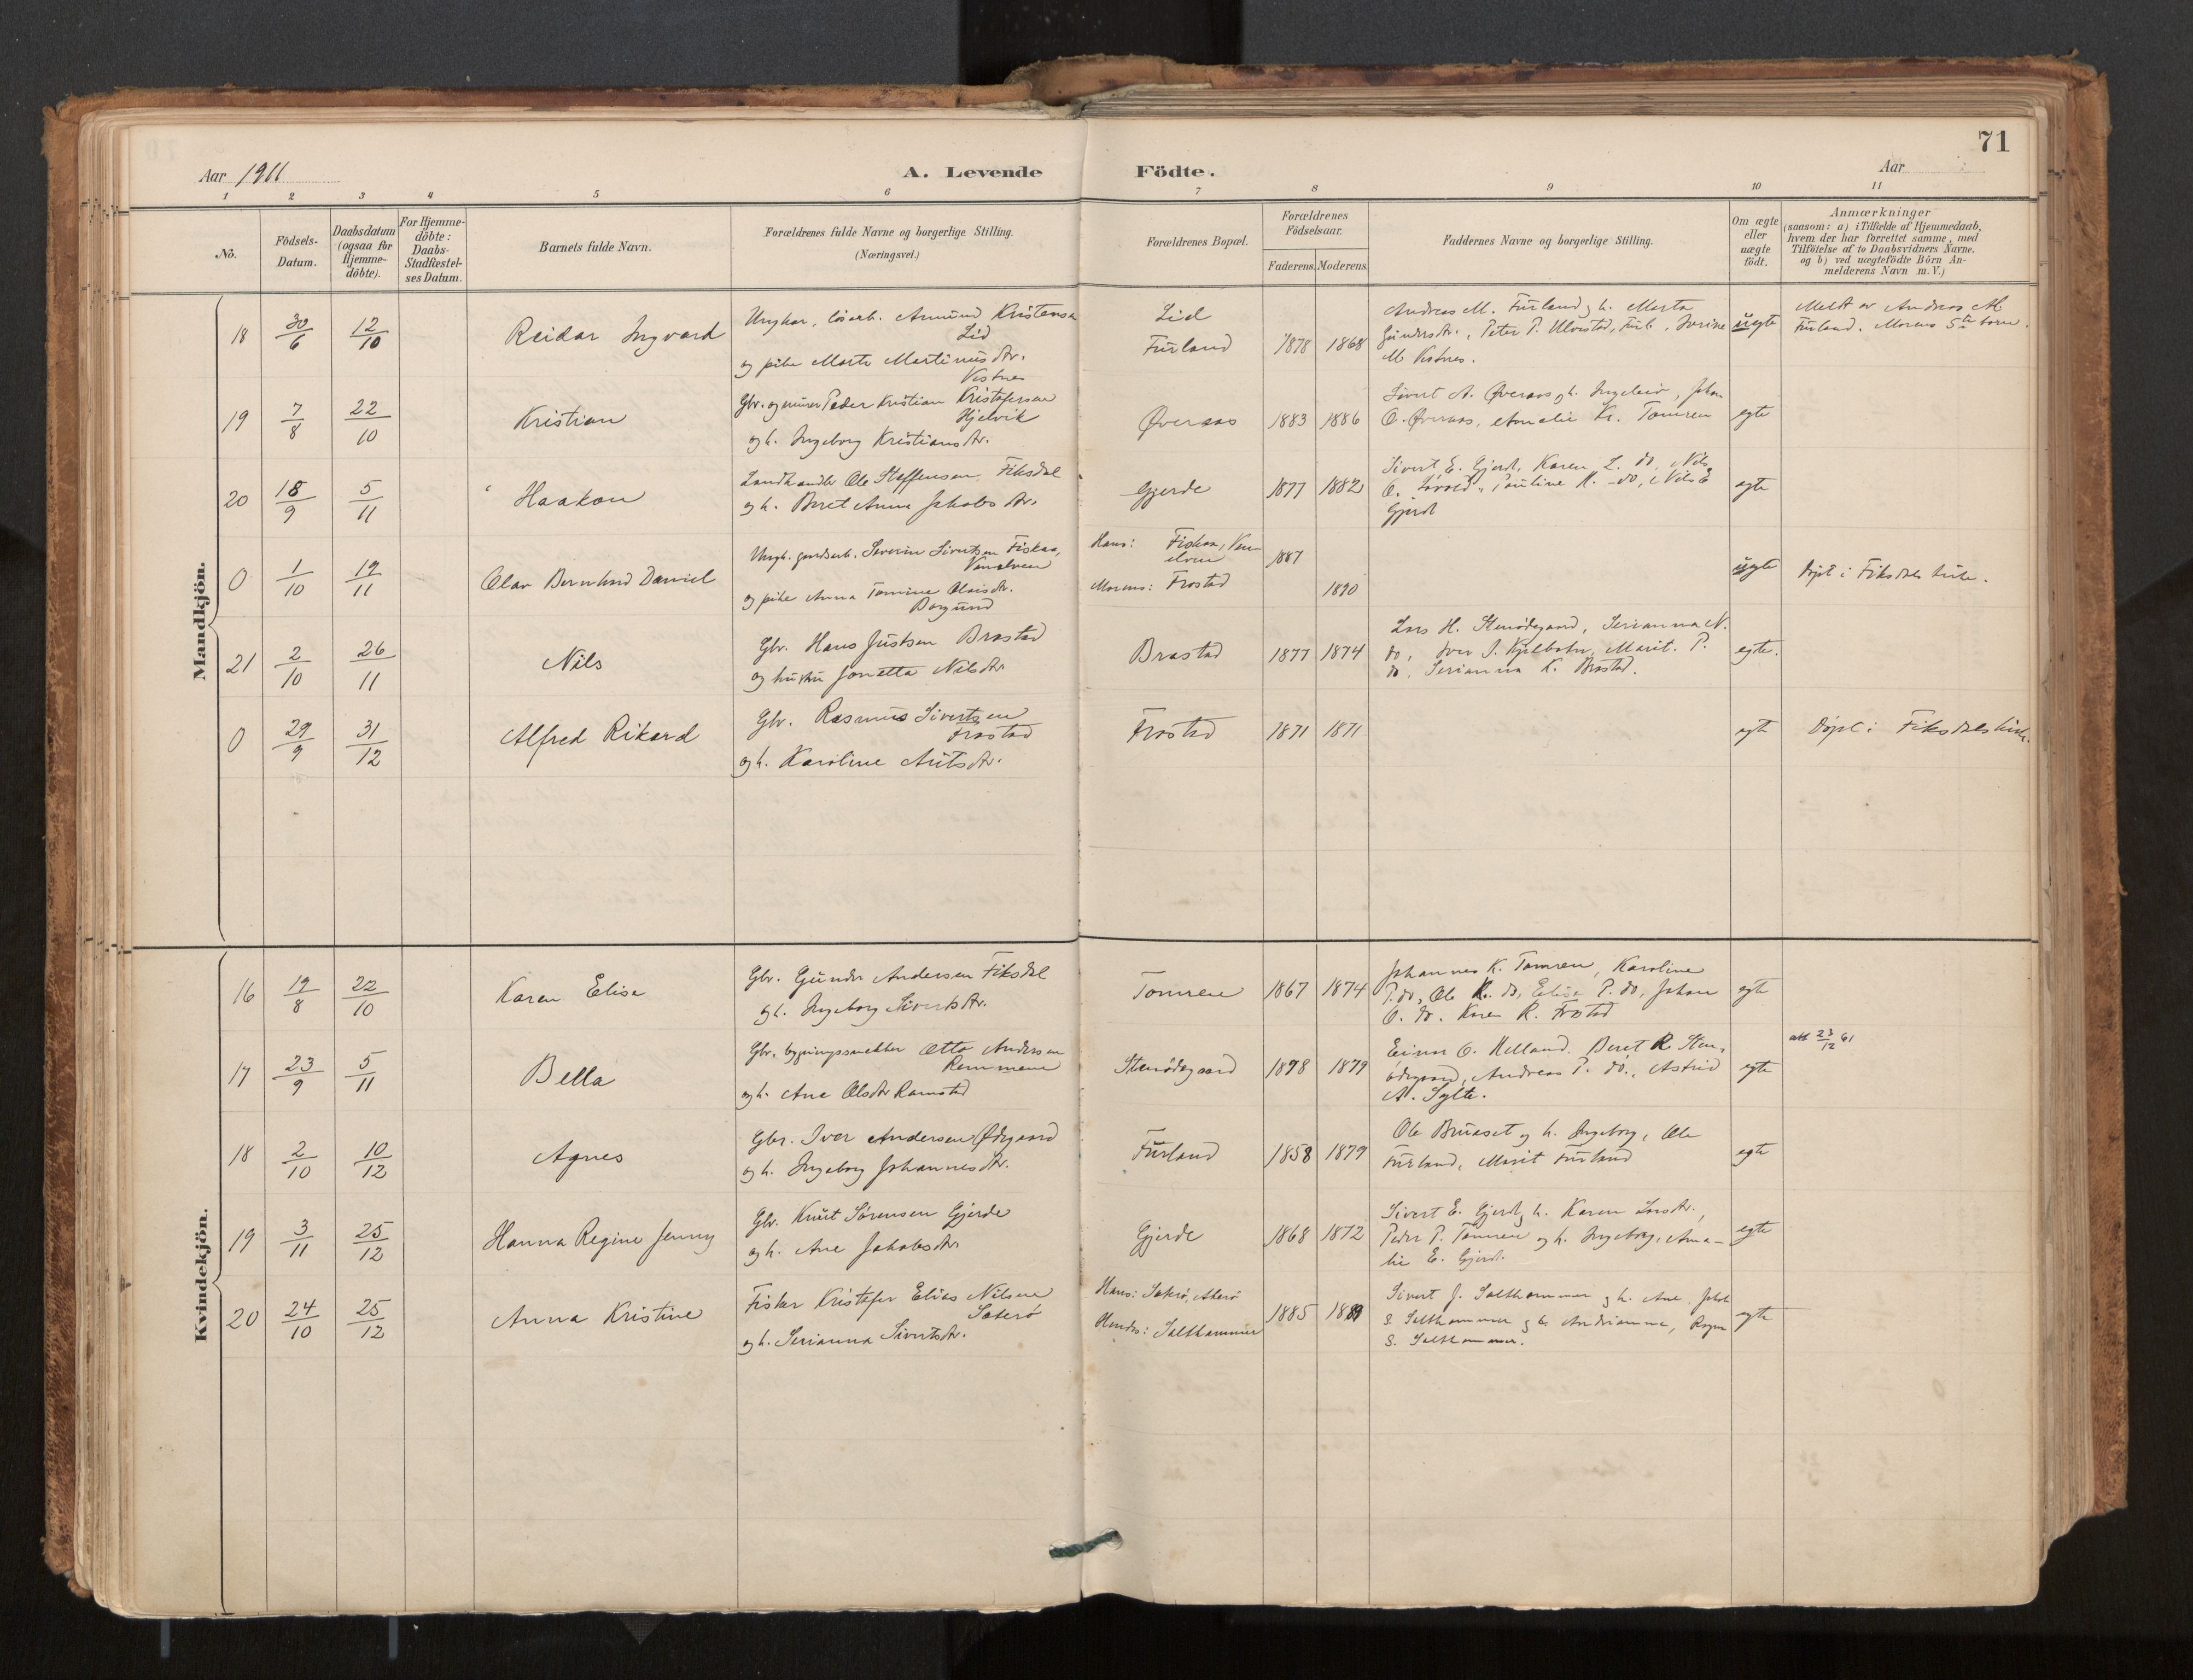 71
Aar 1911
A. Levende Födte.
Aar
1 2 3 4 5 6 7 8 9 10 11
No.
Födsels-Datum.
Daabsdatum (ogsaa for Hjemme-döbte).
For Hjemme-döbte: Daabs-Stadfæstel-ses Datum.
Barnets fulde Navn.
Forældrenes fulde Navne og borgerlige Stilling. (Næringsvei.)
Forældrenes Bopæl.
Forældrenes Födselsaar.
Faderens. Moderens.
Faddernes Navne og borgerlige Stilling.
Om ægte eller uægte födt.
Anmærkninger
(saasom: a) i Tilfælde af Hjemmedaab, hvem der har forrettet samme, med Tilföielse af to Daabsvidners Navne. og b) ved uægtefödte Börn An-melderens Navn m. V.)
Mandkjön.
18 30/6 12/10 Reidar Ingvard
Ungkar, løsarb. Amund Kristensen
Lid
og pike Marta Martinusdtr.
Vestnes
Lid
Furland 1878 1868
Andreas M. Furland og h. Marta
Gundersdtr., Peter P. Ulvestad, Furl.
M. Vestnes.
uegte
Meldt av Andreas M.
Furland. Morens 5te barn.
19 7/8 22/10 Kristian
Gbr. og murer Peder Kristian Kristofersen
Hjelvik
og h. Ingeborg Kristiansdtr.
Øveraas 1883 1886
Sivert A. Øveraas og h. Ingeleiv, Johan
O. Øveraas, Amalie Kr. Tomren
egte
20 18/9 5/11 Haakon
Landhandler Ole Steffensen Fiksdal
og h. Beret Anna Jakobsdtr.
Gjerde 1877 1882
Sivert E. Gjerde, Karen L. do, Nils
O. Pauline K. do, Nils E
Gjerde
egte
0 1/10 19/11 Olav Bernhard Daniel
Ungk. gaardsarb. Severin Sivertsen Fiskaa,
Vanelven
og pike Anna Tomine Olaisdtr.
Borgund
Hans: Fiskaa, Van-
elven 1887
Morens: Frostad 1890
uegte
Døpt i Fiksdals kirke.
21 2/10 26/11 Nils
Gbr. Hans Justsen Brastad
og hustru Jonetta Nilsdtr.
Brastad 1877 1874
Lars H. Stenødegaard, Serianna N.
do, Iver J. Kjelbotn, Marit P.
do, Serianna K. Brastad.
egte.
0 29/9 31/12 Alfred Rikard
Gbr. Rasmus Sivertsen
Frostad
og h. Karoline Autsdtr.
Frostad 1871 1871
egte
Døpt i Fiksdals kirke.
Kvindekjön.
16 19/8 22/10 Karen Elise
Gbr. Gunder Andersen Fiksdal
og h. Ingeborg Sivertsdtr.
Tomren 1867 1874
Johannes K. Tomren, Karoline
P. do, Ole K. do, Elise P. do, Johan
O. do. Karen R. Frostad
egte
17 23/9 5/11 Bella
Gbr., bygningssnekker Otto Andersen
Remmem
og h. Ane Olsdtr Ramstad
Stenødegaard 1878 1879
Einar O. Helland. Beret R. Sten-
ødegaard, Andreas P. do., Astrid
A. Sylte.
egte
att 23/12 61
18 2/10 10/12 Agnes
Gbr. Iver Andersen Ødegaard
og h. Ingeborg Johannesdtr.
Furland 1858 1879
Ole Bruaset og h. Ingeborg, Ole
Furland, Marit Furland
egte
19 3/11 25/12 Hanna Regine Jenny
Gbr. Knut Sørensen Gjerde
og h. Ane Jakobsdtr.
Gjerde 1868 1872
Sivert E. Gjerde og h. Karen Larsdtr.,
Peder P. Tomren og h. Ingeborg, Ama-
lie E. Gjerde.
egte
20 24/10 25/12 Anna Kristine
Fisker Kristofer Elias Nilsen
Saterø
og h. Serianna Sivertsdtr.
Hans: Saterø, Akerø
Hendes: Salthammer 1885 1889
Sivert J. Salthammer og h. Ane, Jakob
S. Salthammer og h. Andrianna,
S. Salthammer.
egte